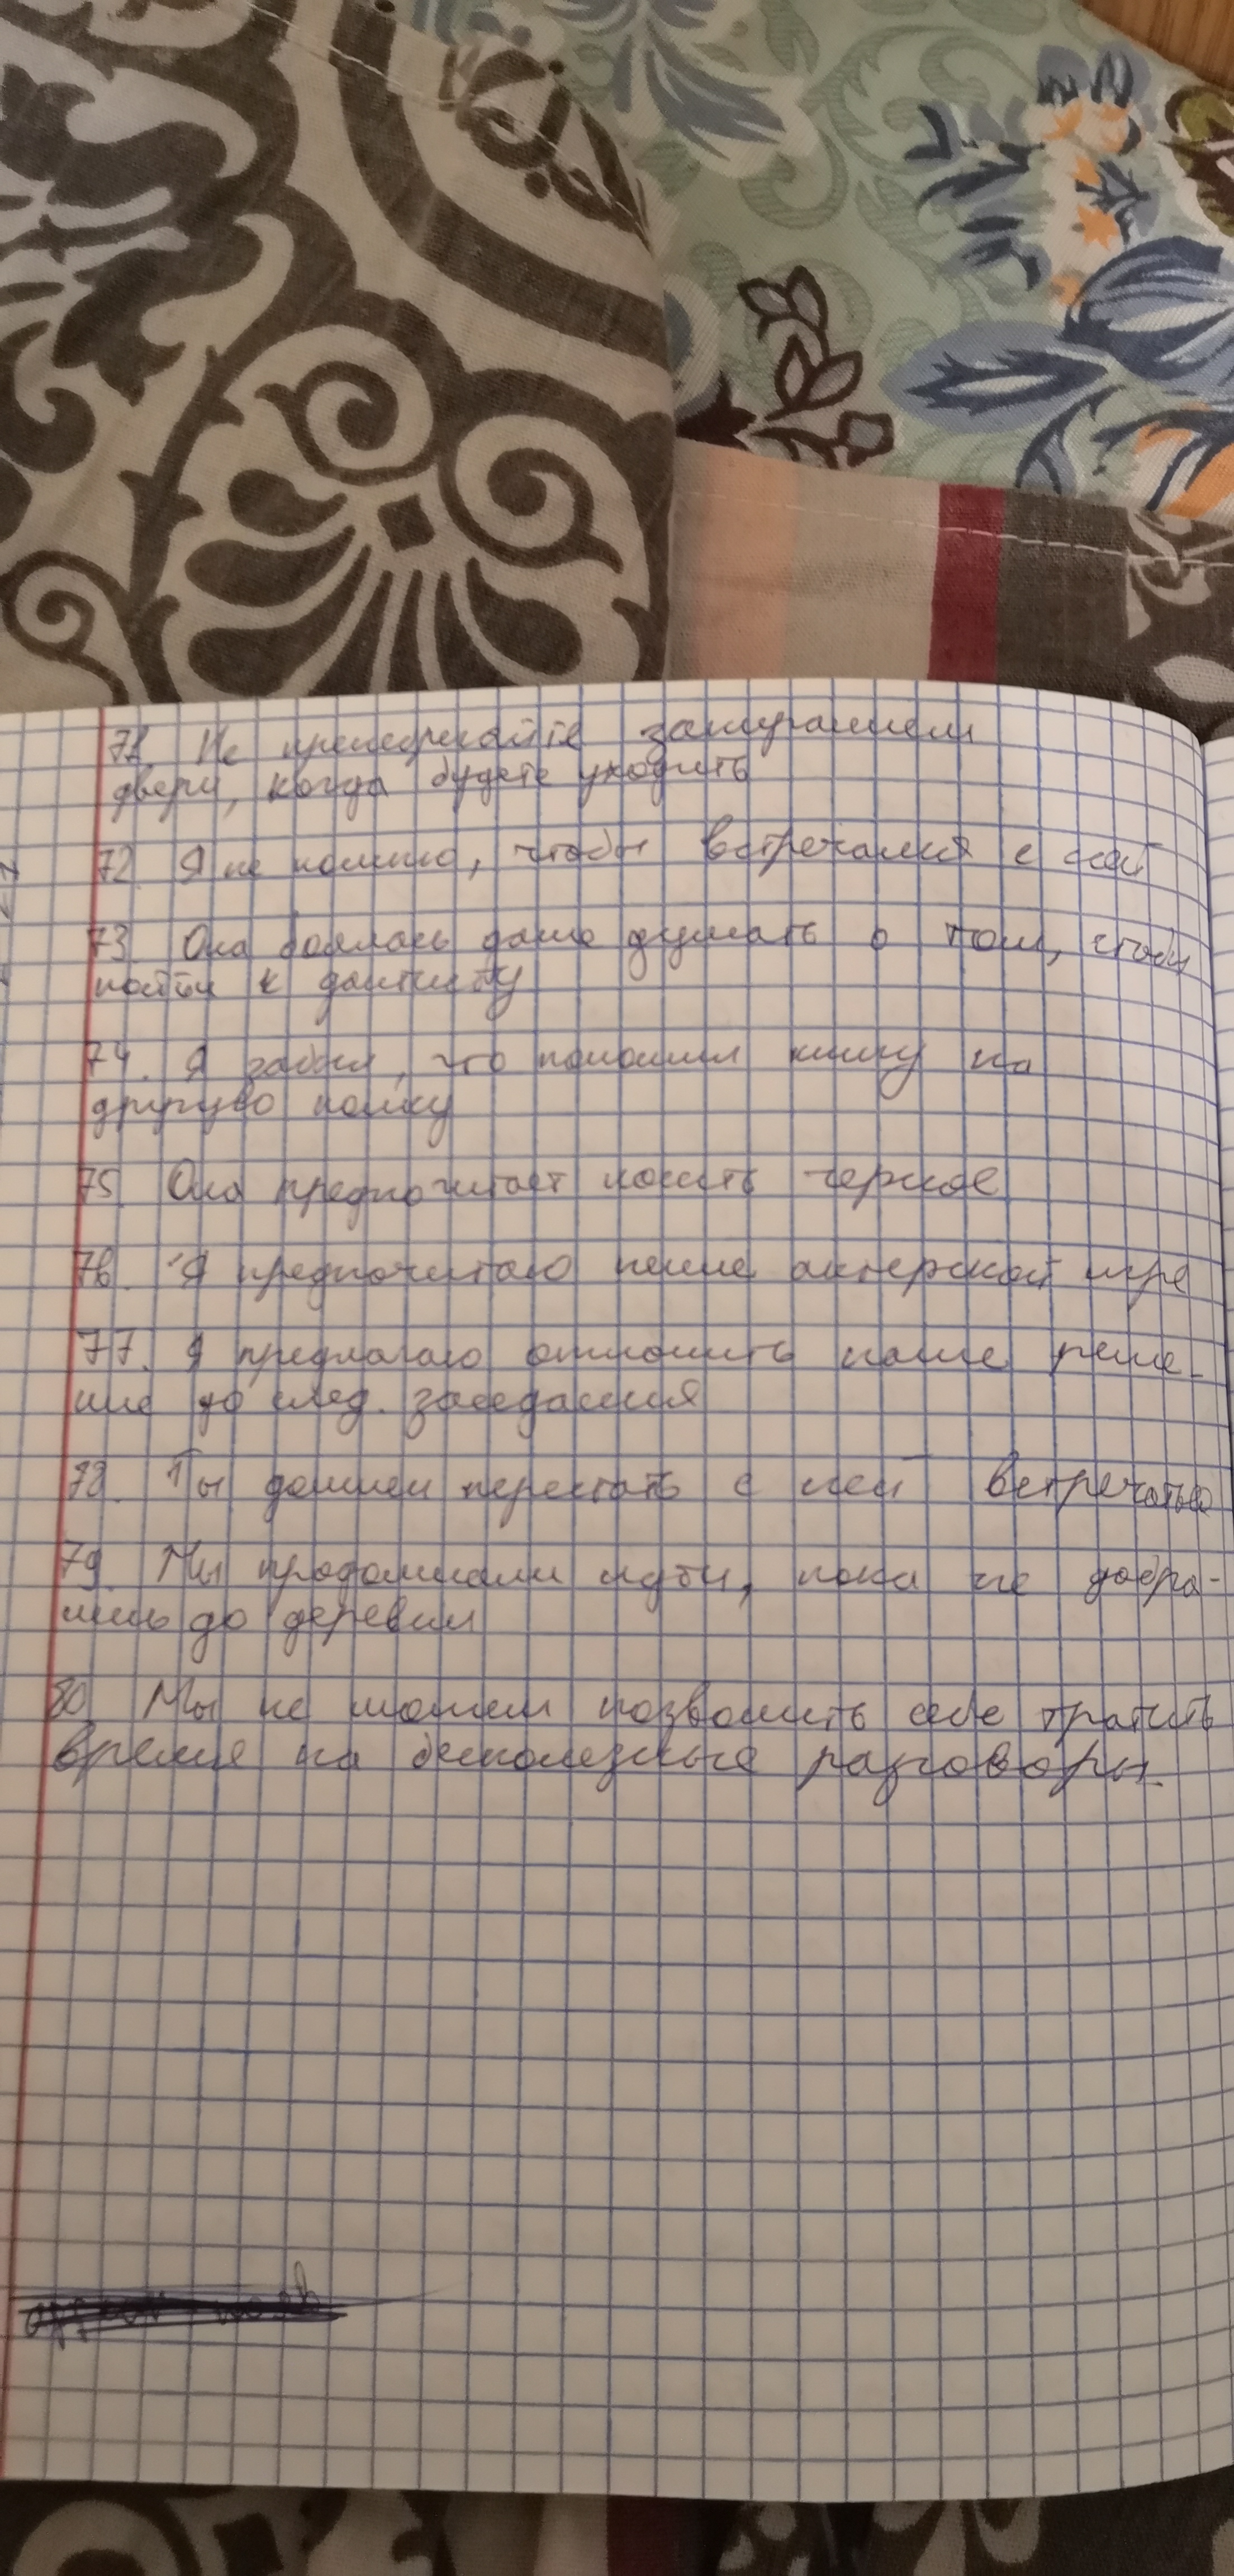 71. Не пренебрегайте запиранием
двери, когда будете уходить
72. Я не помню, чтобы встречался с ней
73. Она боялась даже думать о том, чтобы
пойти к дантисту
74. Я забыл, что положил книгу на
другую полку
75. Она предпочитает носить черное
76. Я предпочитаю пение актерской игре
77. Я предлагаю отложить наше реше-
ние до след. заседания
78. Ты должен перестать с ней встречаться
79. Мы продолжали идти, пока не добра-
лись до деревни
80. Мы не можем позволить себе тратить
время на бесполезные разговоры.